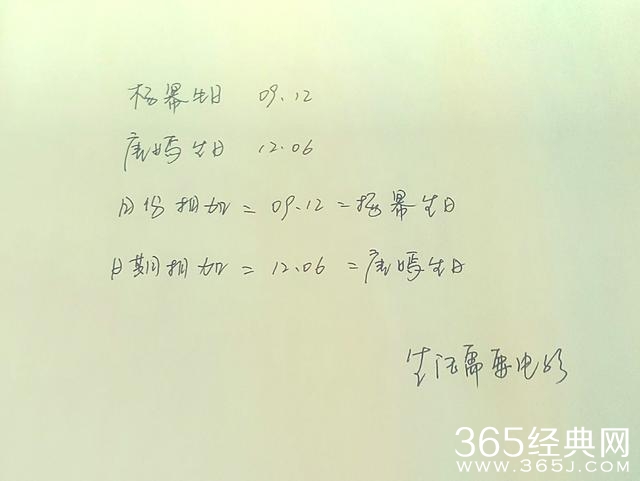 杨幂生日 09.12
唐嫣生日 12.06
月份相加=09.12=杨幂生日
日期相加=12.06=唐嫣生日
生活需要电影
365经典网
WWW.365J.COM